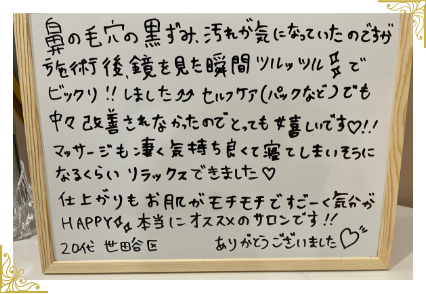 鼻の毛穴の黒ずみ、汚れが気になっていたのですが
施術後、鏡を見た瞬間ツルッツル☆☆で
ビックリ!!しました⤴⤴ セルフケア(パックなど)でも
中々改善されなかったのでとっても嬉しいです♡!!
マッサージも凄く気持ち良くて寝てしまいそうに
なるくらいリラックスできました♡
仕上がりもお肌がモチモチですごーく気分が
HAPPY☆☆本当にオススメのサロンです!!
20代 世田谷区 ありがとうございました♡